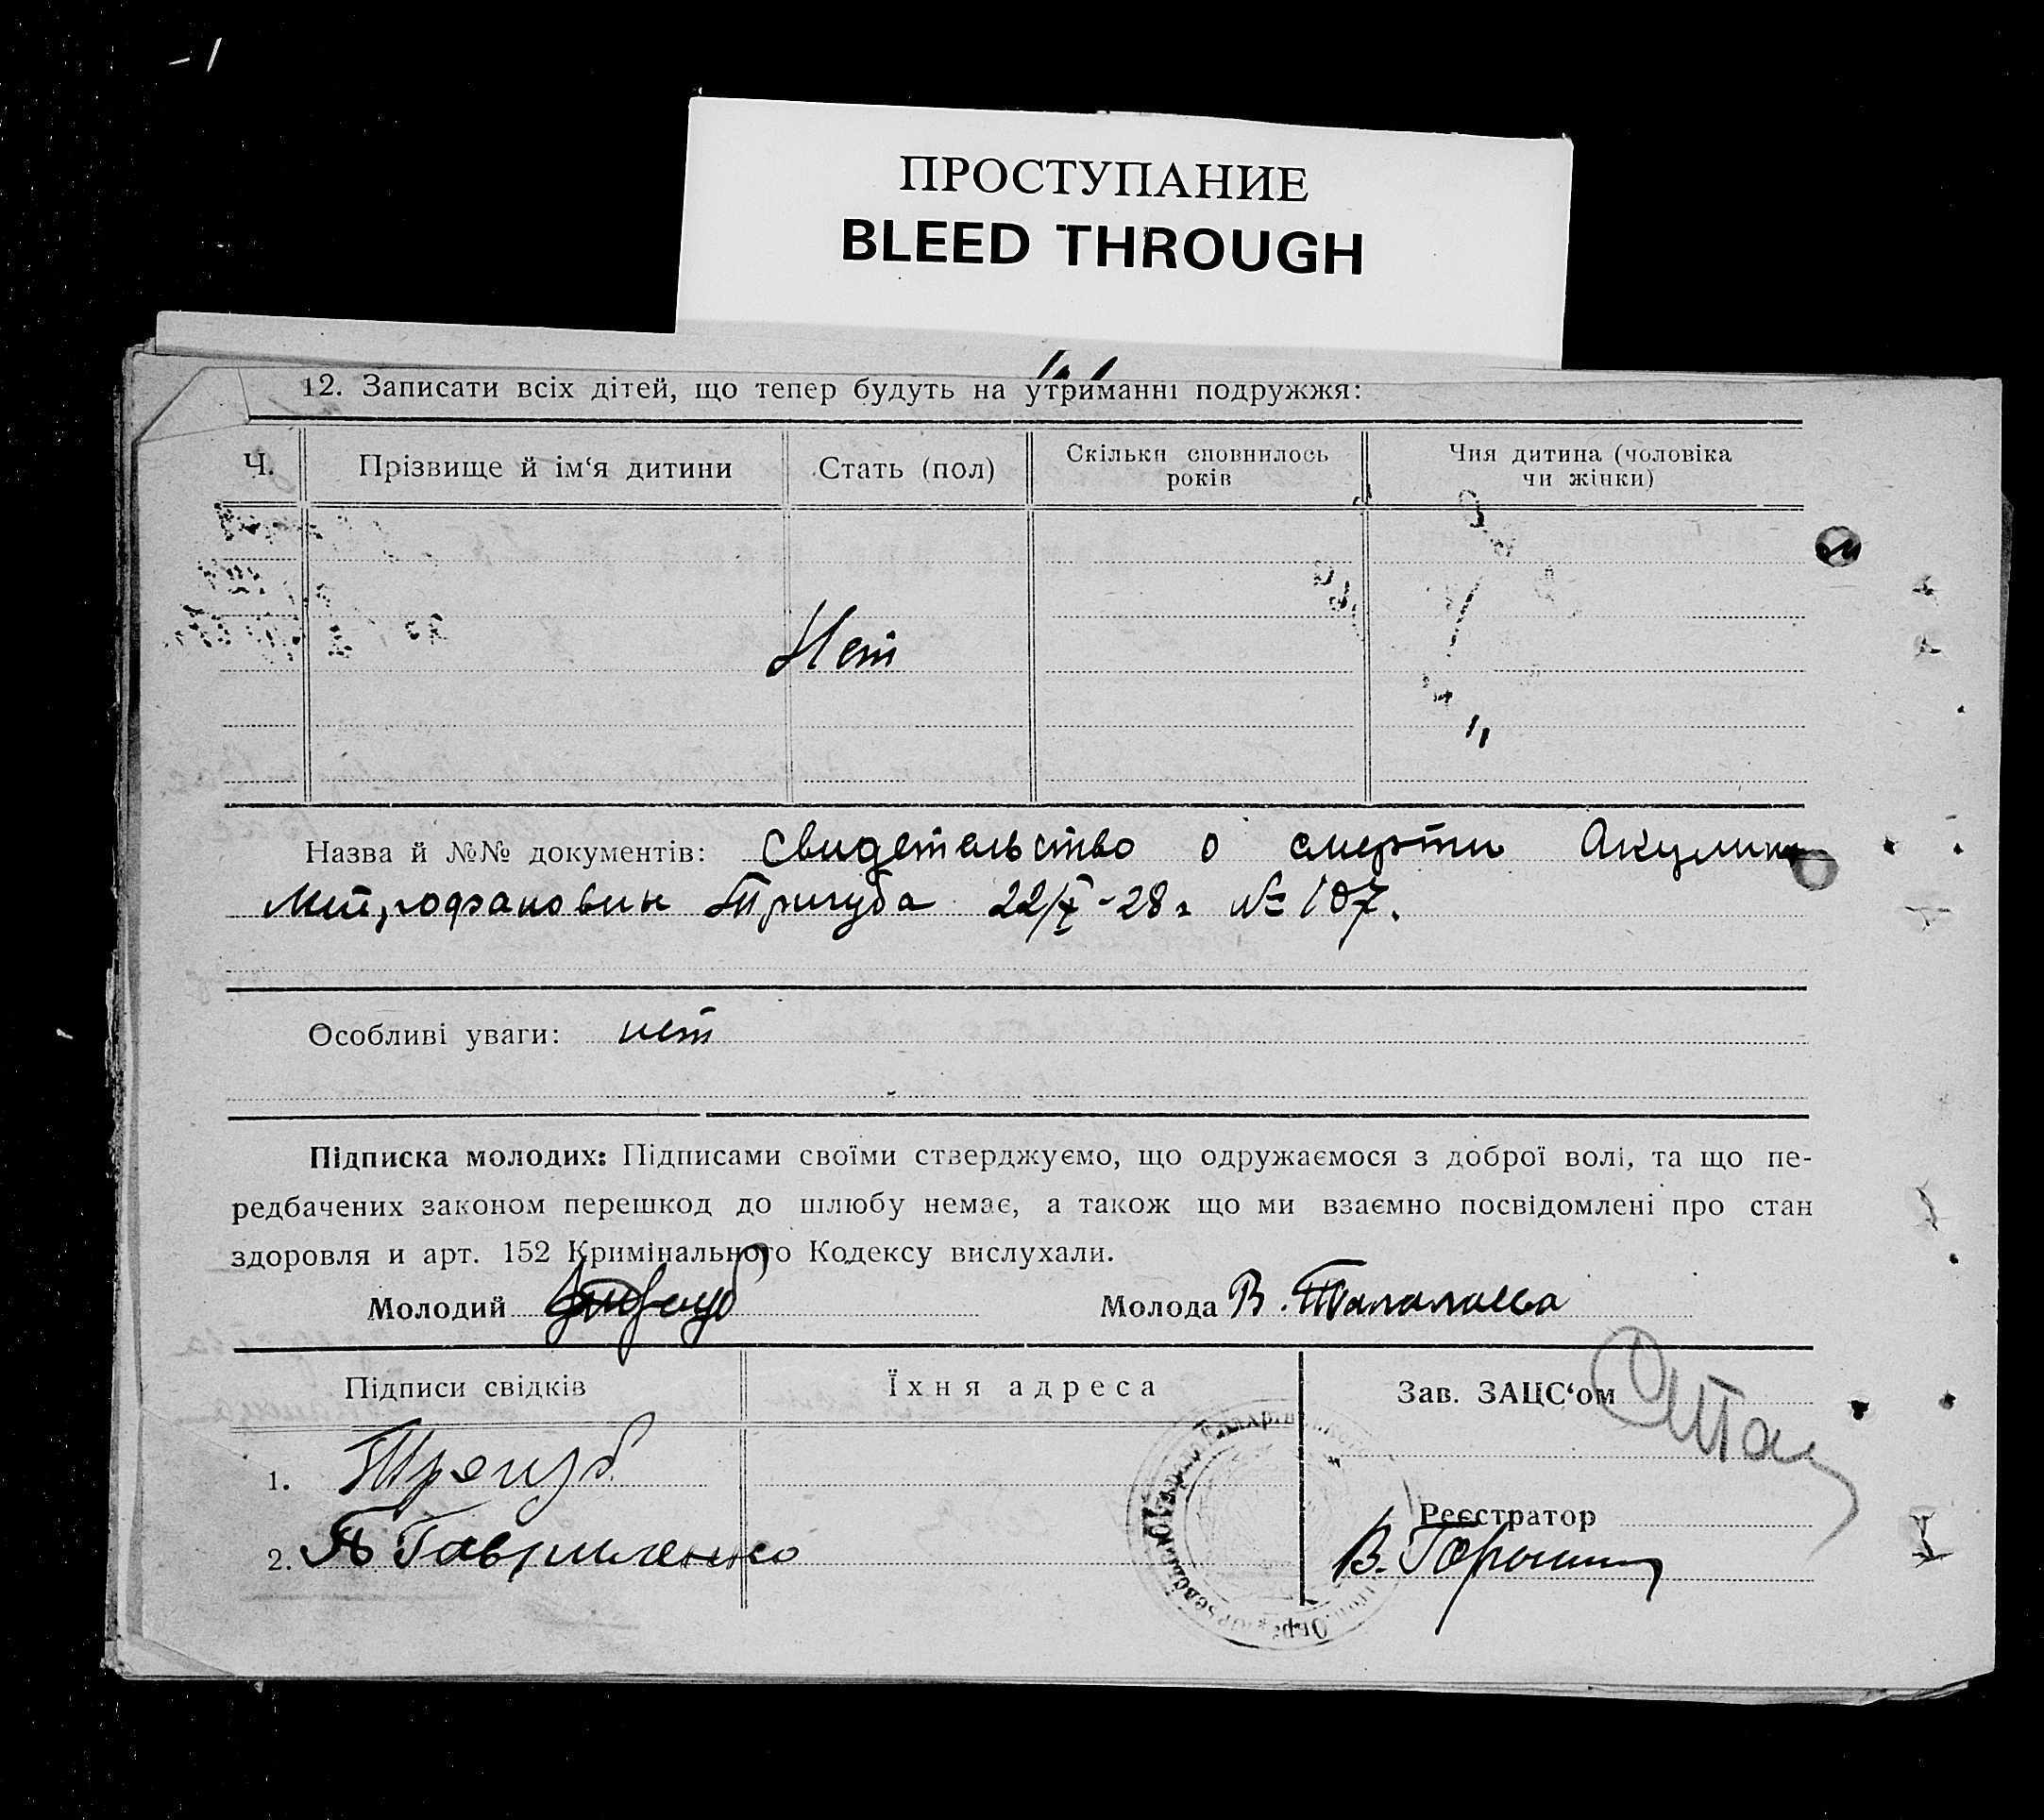 ПРОСТУПАНИЕ
BLEED THROUGH
12. Записати всіх дітей, що тепер будуть на утриманні подружжя:
Ч. Прізвище й ім‘я дитини Стать (пол) Скільки сповнилось років Чия дитина (чоловіка чи жінки)
Нет
Назва й №№ документів: Свидетельство о смерти Акулины
Митрофановны Тригуба 22/X-28г №187.
Особливі уваги: нет
Підписка молодих: Підписами своїми стверджуємо, що одружаємося з доброї волі, та що пе-
редбачених законом перешкод до шлюбу немає, а також що ми взаємно посвідомлені про стан
здоровля и арт. 152 Кримінального Кодексу вислухали.
Молодий Молода В. Талалаева
Підписи свідків Їхня адреса Зав. ЗАЦС‘ом
1. Трегуб
Реєстратор
2. Гавриленко